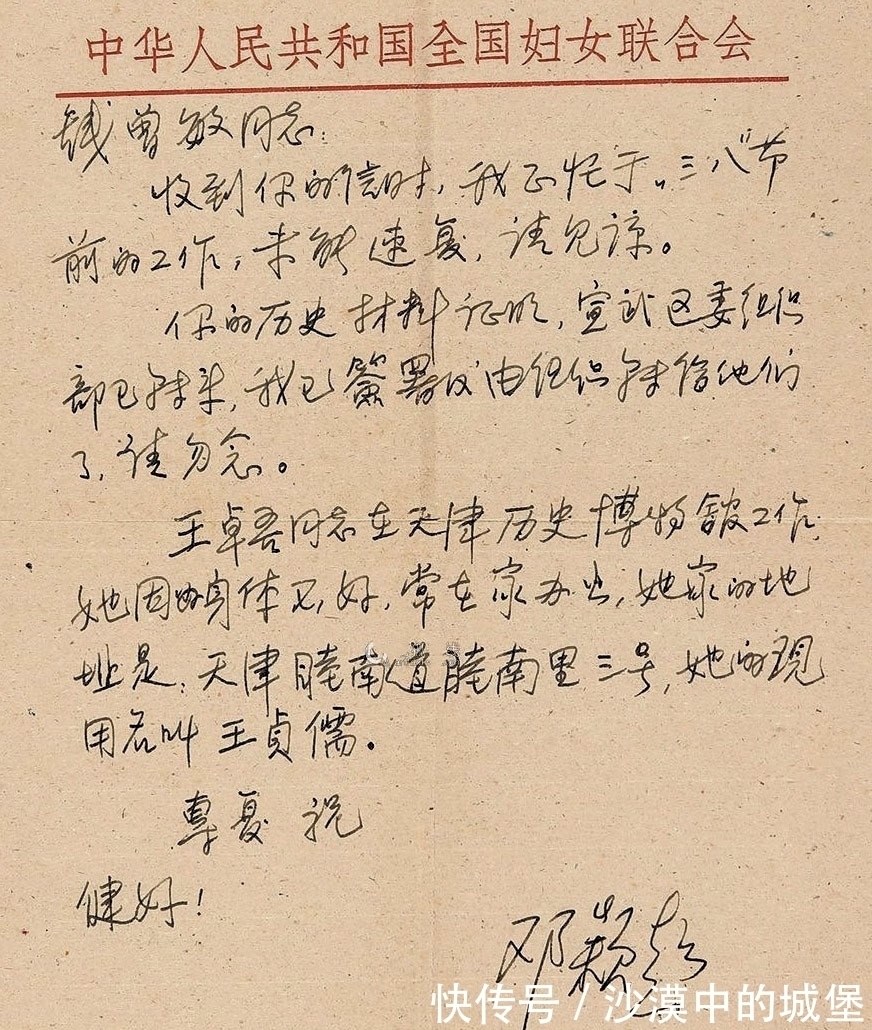 中华人民共和国全国妇女联合会
钱曾敏同志:
收到你的信时,我正忙于"三八"节
前的工作,未能速复,请见谅。
你的历史材料证明,宣武区委组织
部已转来,我已簽署后由组织转给他们
了,请勿念。
王卓吾同志在天津历史博物馆工作,
她因为身体不好,常在家办公,她家的地
址是:天津睦南道睦南里三号,她的现
用名叫王贞儒。
专复 祝
健好!
邓颖超
快传号 / 沙漠中的城堡